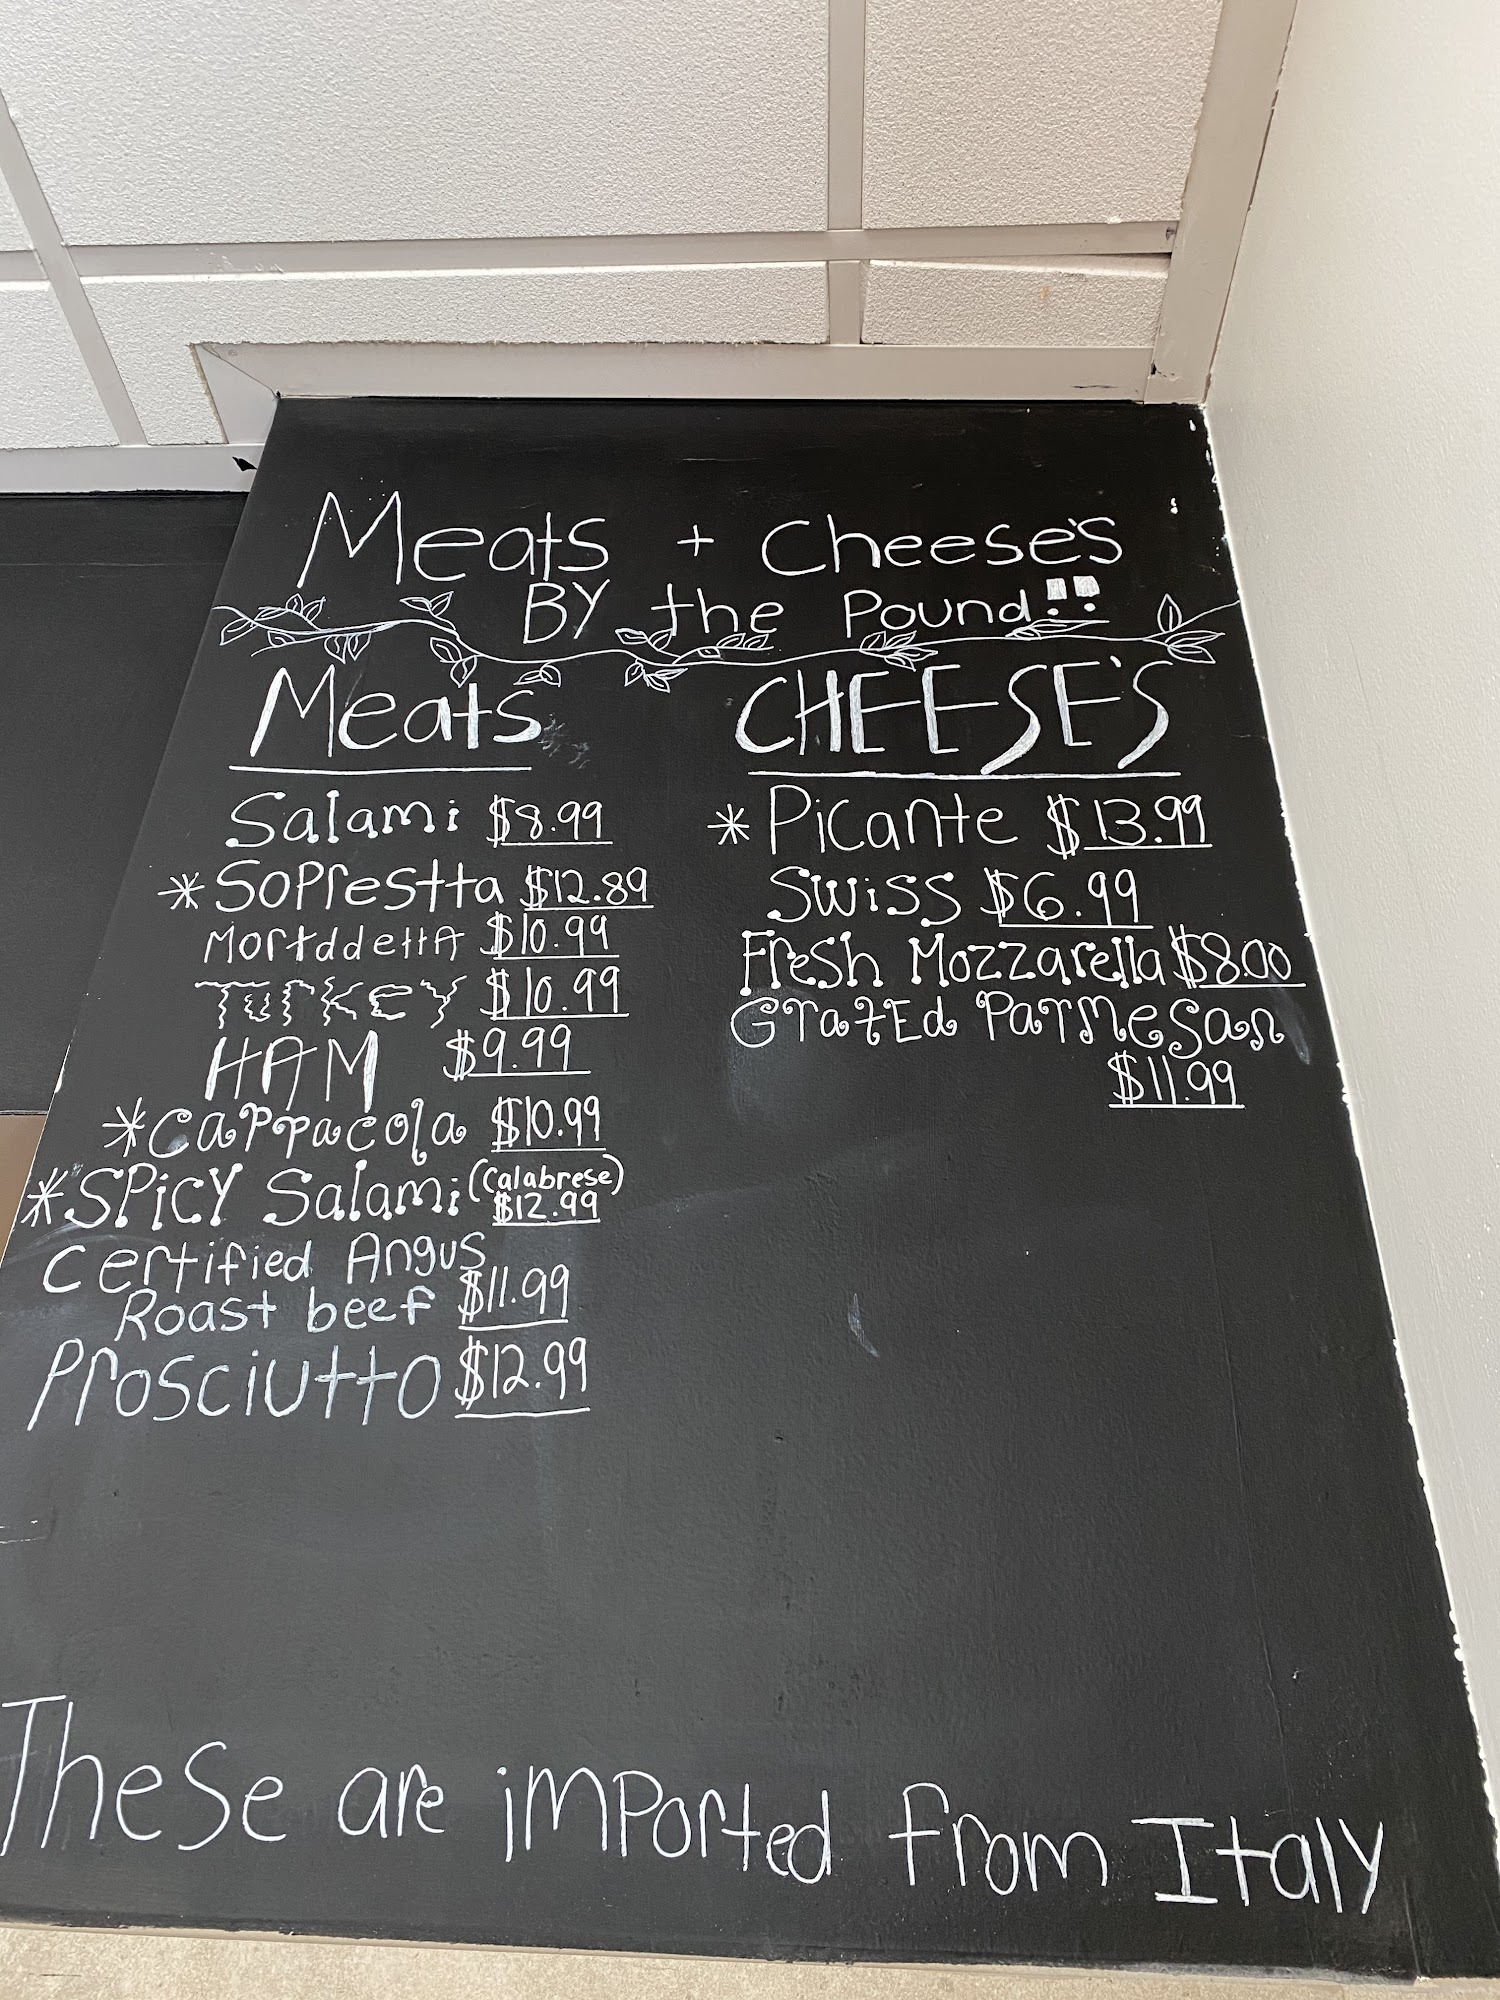 Meats + Cheese's
BY the Pound!!
Meats
Salami $8.99
*Soprestta $12.89
MortddettA $10.99
TurKeY $10.99
HAM $9.99
*cappacola $10.99
*SPicY Salami (Calabrese)
$12.99
Certified Angus
Roast beef $11.99
Prosciutto $12.99
CHEESE'S
*Picante $13.99
Swiss $6.99
Fresh Mozzarella $8.00
GratEd Parmesan
$11.99
These are imported from Italy